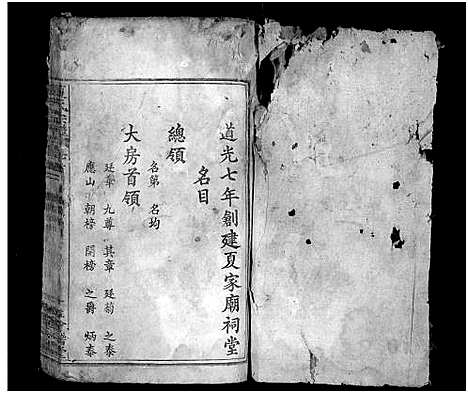 道光七年創建夏家廟祠堂
名目
總領
名第 名均
大房首領
廷華 九尊 其章 廷菊 之泰
應山 朝榜 開榜 之爵 炳泰